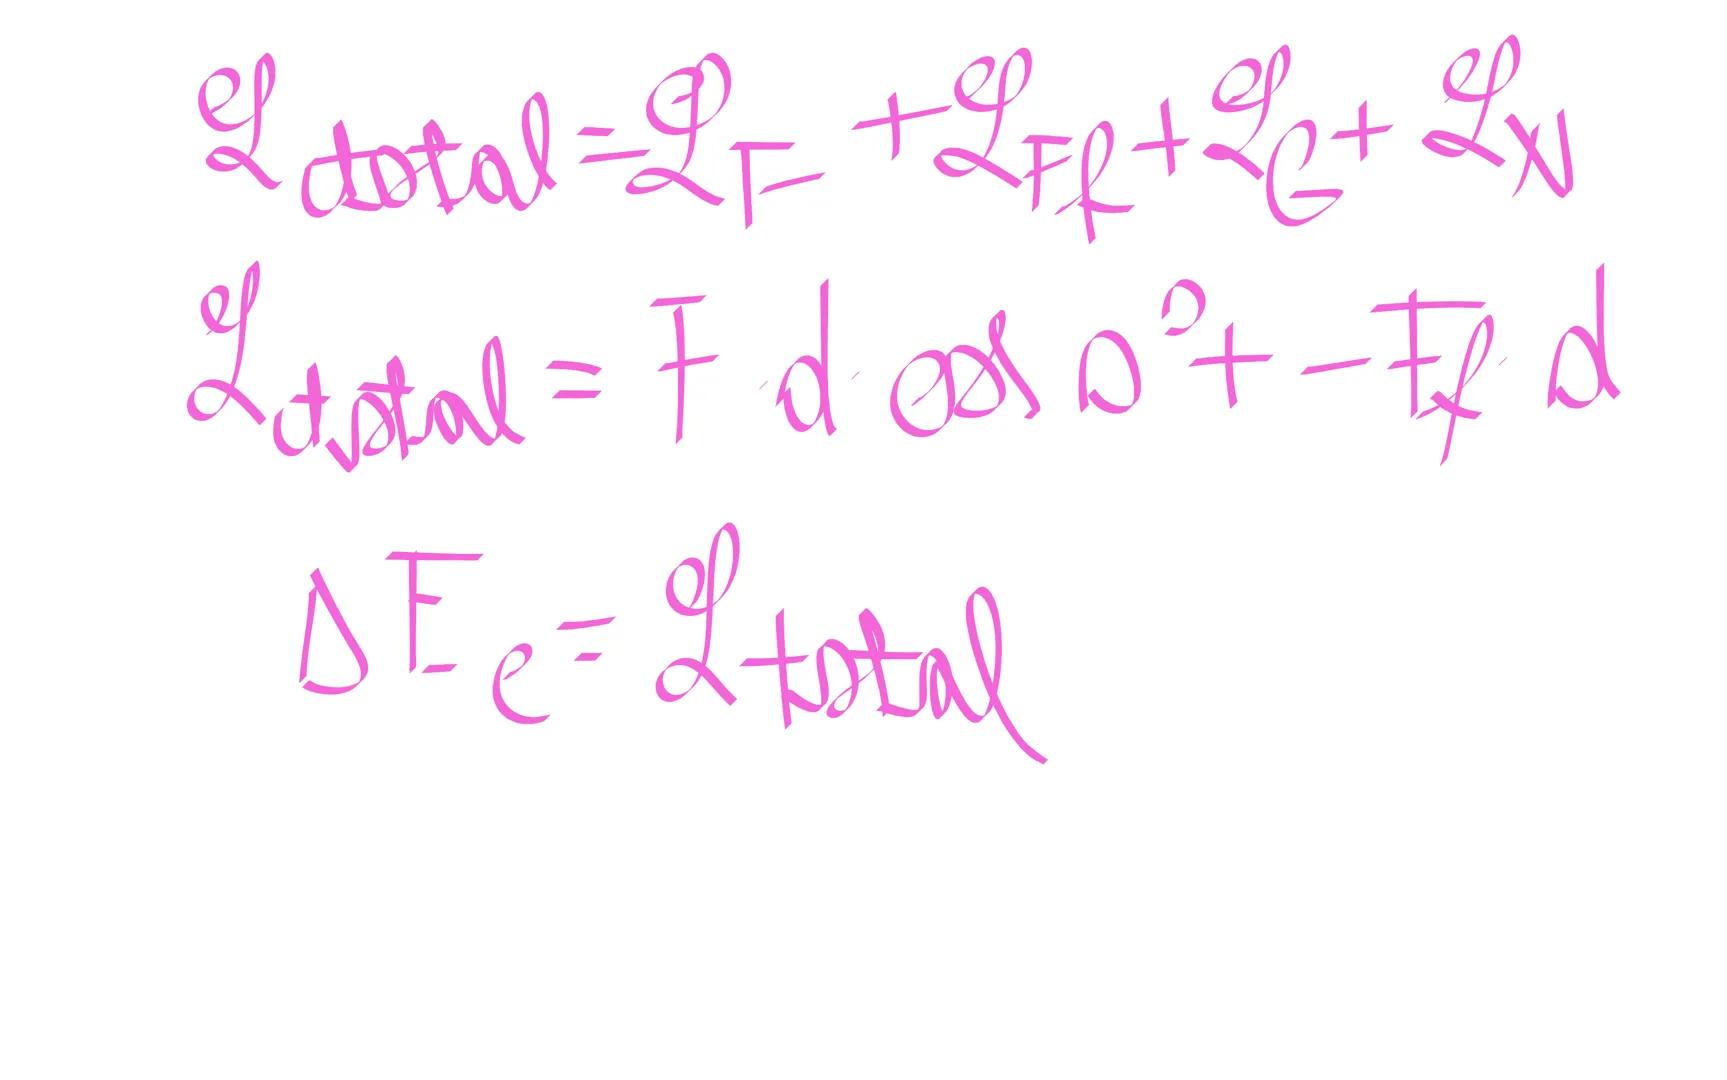 ℒ_total = ℒ_F + ℒ_Ff + ℒ_G + ℒ_N
ℒ_total = F · d · cos 0° + - Ff · d
ΔE_c = ℒ_total